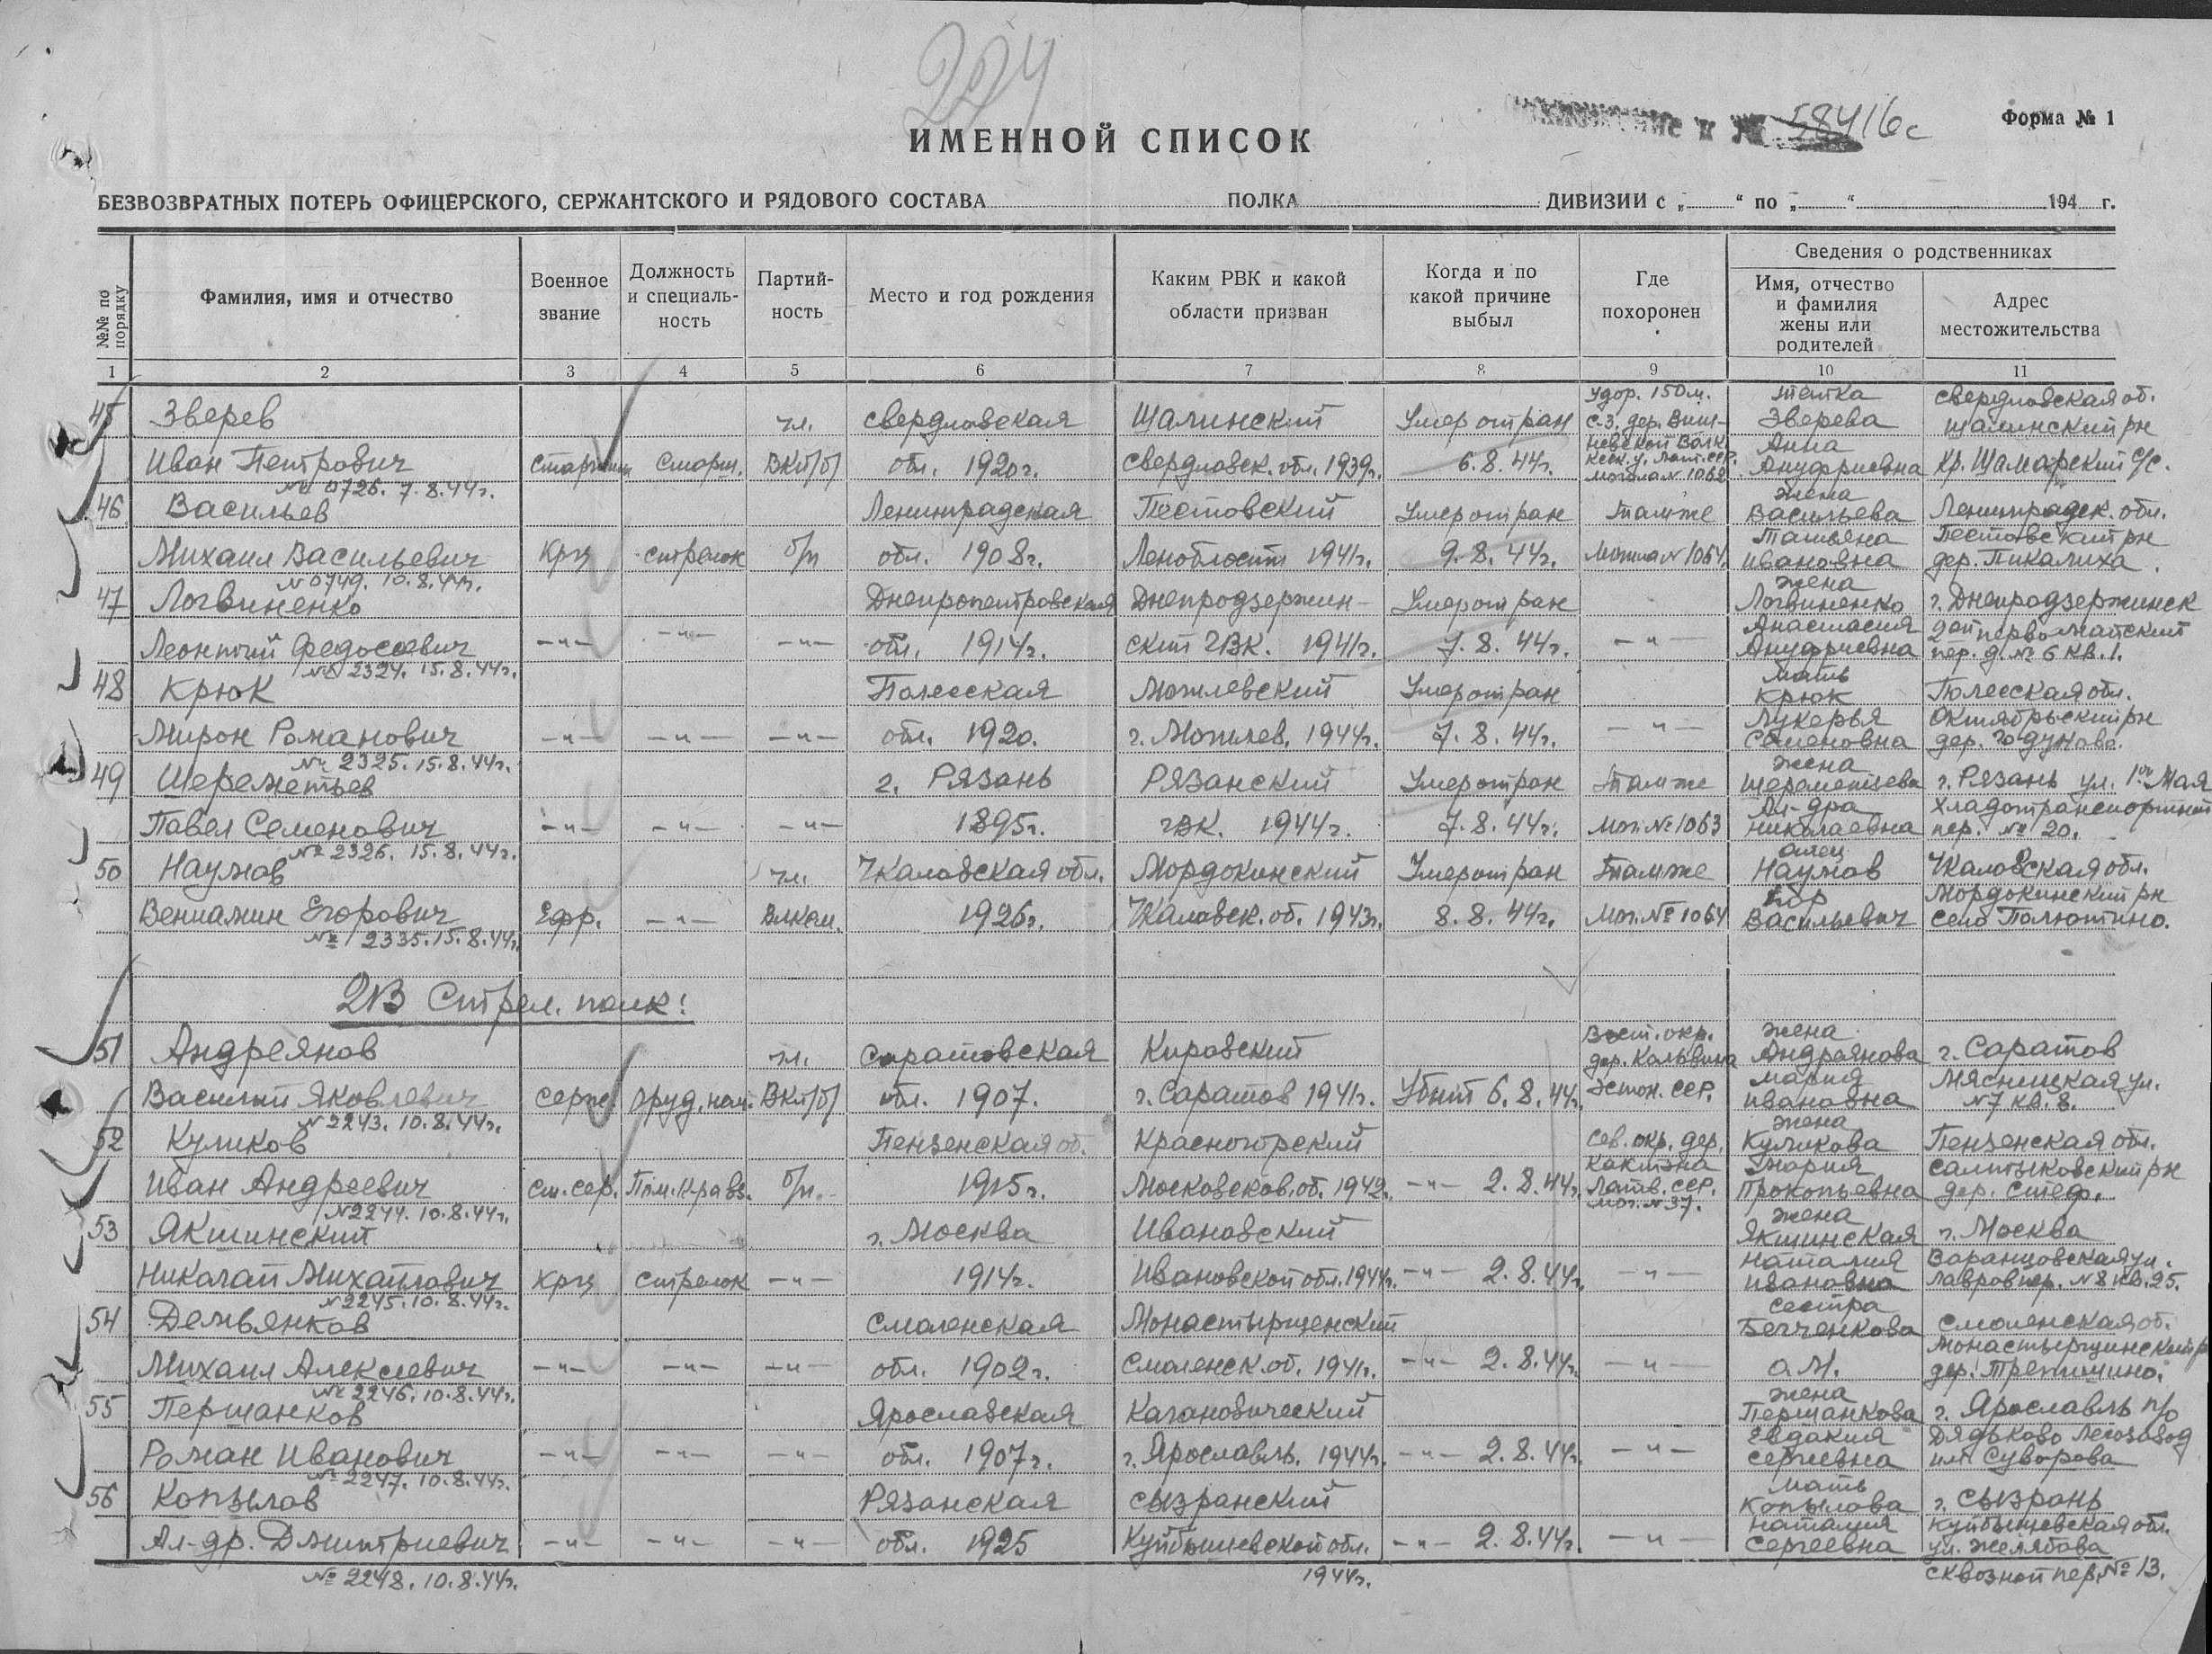 224
ИМЕННОЙ СПИСОК
58416с
Форма № 1
БЕЗВОЗВРАТНЫХ ПОТЕРЬ ОФИЦЕРСКОГО, СЕРЖАНТСКОГО И РЯДОВОГО СОСТАВА ПОЛКА ДИВИЗИИ с „ “ по „ “ 194 г.
№№ по порядку
Фамилия, имя и отчество
Военное звание
Должность и специаль-ность
Партий-ность
Место и год рождения
Каким РВК и какой области призван
Когда и по какой причине выбыл
Где похоронен
Сведения о родственниках
Имя, отчество и фамилия жены или родителей
Адрес местожительства
1 2 3 4 5 6 7 8 9 10 11
45 Зверев чл. свердловская Шалинский Умер от ран тетка Зверева свердловская об. шалинский рн
Иван Петрович Старшин Старш. ВКП/б/ обл. 1920г. свердловск. обл. 1939г. 6.8.44г. удор. 150м. с.з. дер. Виш- могила № 1062 Анна Ануфриевна Кр. Шамарский с/с.
№ 0726. 7.8.44г.
46 Васильев Ленинградская Пестовский Умер от ран Там же жена Васильева Ленинградск. обл.
Михаил Васильевич Крц стрелок б/п обл. 1908г. Ленобласти 1941г. 9.8.44г. Могила № 1064. Татьяна Ивановна Пестовский рн дер. Пикалиха.
№ 0749. 10.8.44г.
47 Логвиненко Днепропетровская Днепродзержин- Умер от ран жена Логвиненко г. Днепродзержинск
Леонтий Федосеевич –"– –"– –"– обл. 1914г. ский ГВК. 1941г. 7.8.44г. –"– Анастасия Ануфриевна 2ой первомайский пер. д. № 6 кв. 1.
№ 2324. 15.8.44г.
48 Крюк Полесская Могилевский Умер от ран мать Крюк Полесская обл.
Мирон Романович –"– –"– –"– обл. 1920. г. Могилев. 1944г. 7.8.44г. –"– Лукерья Семеновна Октябрьский рн дер. Годунова.
№ 2325. 15.8.44г.
49 Шереметьев г. Рязань Рязанский Умер от ран Там же жена Шереметьева г. Рязань ул. 1ое Мая
Павел Семенович –"– –"– –"– 1895г. ГВК. 1944г. 7.8.44г. Мог. № 1063 Ал-дра Николаевна Хладотранспортный пер. № 20.
№ 2326. 15.8.44г.
50 Наумов чл. Чкаловская обл. Мордокинский Умер от ран Там же отец Наумов Чкаловская обл.
Вениамин Егорович Ефр. –"– Влксм. 1926г. Чкаловск. об. 1943г. 8.8.44г. Мог. № 1064 Васильевич Мордокинский рн село Полютино.
№ 2335. 15.8.44г.
213 Стрел. полк:
51 Андреянов чл. Саратовская Кировский жена Андреянова г. Саратов
Василий Яковлевич серж. оруд. нач. ВКП/б/ обл. 1907. г. Саратов 1941г. Убит 6.8.44г. Вост. окр. дер. Кальвина Эстон. ССР. Мария Ивановна Мясницкая ул. № 7 кв. 8.
№ 2243. 10.8.44г.
52 Куликов Пензенская об. Красногорский жена Куликова Пензенская обл.
Иван Андреевич ст. сер. Пом. к-ра вз. б/п. 1915г. Московсков. об. 1942. –"– 2.8.44г. Сев. окр. дер. Латв. ССР. мог. № 37. Мария Прокопьевна салтыковский рн дер. Стеф.
№ 2244. 10.8.44г.
53 Якшинский г. Москва Ивановский жена Якшинская г. Москва
Николай Михайлович Крц стрелок –"– 1914г. Ивановской обл. 1944г. –"– 2.8.44г. –"– Наталия Ивановна Воронцовская ул. Лавров пер. № 8 кв. 25.
№ 2245. 10.8.44г.
54 Демьянков Смоленская Монастырщенский сестра Смоленская об.
Михаил Алексеевич –"– –"– –"– обл. 1902г. Смоленск. об. 1941г. –"– 2.8.44г. –"– А.М. Монастырщинский р дер.
№ 2246. 10.8.44г.
55 Першанков Ярославская Кагановический жена Першанкова г. Ярославль п/о
Роман Иванович –"– –"– –"– обл. 1907г. г. Ярославль. 1944г. –"– 2.8.44г. –"– Евдакия Сергеевна Дядьково Лесозавод им Суворова
№ 2247. 10.8.44г.
56 Копылов Рязанская Сызранский мать Копылова г. Сызрань
Ал-др. Дмитриевич –"– –"– –"– обл. 1925 Куйбышевской обл. –"– 2.8.44г. –"– Наталия Сергеевна Куйбышевская обл. ул. Желябова
№ 2248. 10.8.44г. 1944г. сквозной пер. № 13.